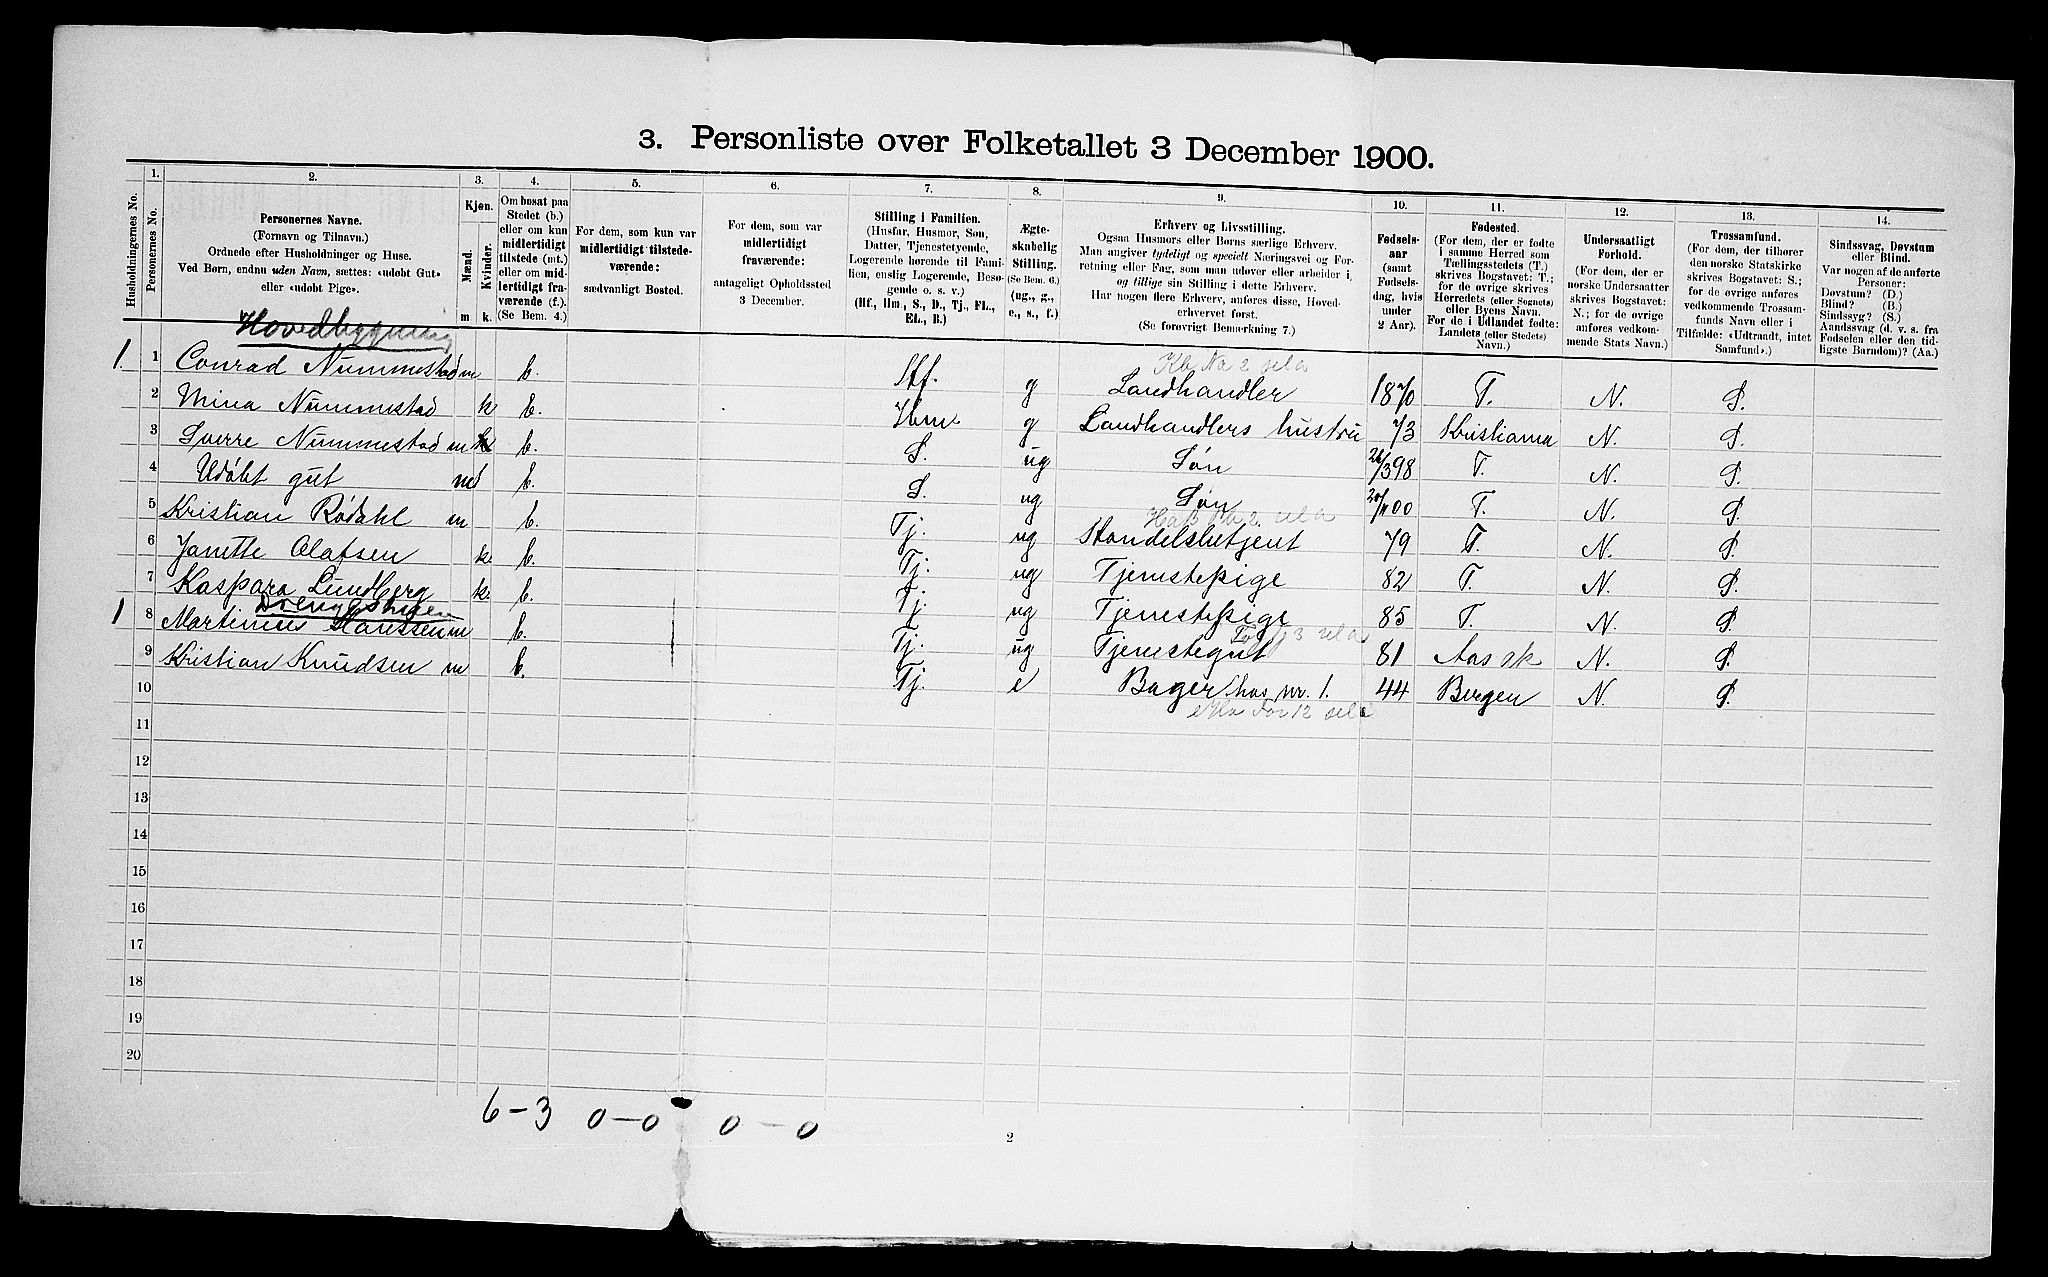 3. Personliste over Folketallet 3 December 1900.
Husholdningernes No.
1.
Personernes No.
2.
Personernes Navne.
(Fornavn og Tilnavn.)
Ordnede efter Husholdninger og Huse.
Ved Børn, endnu uden Navn, sættes: «udøbt Gut»
eller «udøbt Pige».
3.
Kjøn.
Mænd.
Kvinder.
m. k.
4.
Om bosat paa
Stedet (b.)
eller om kun
midlertidigt
tilstede (mt.)
eller om mid-
lertidigt fra-
værende (f.).
(Se Bem. 4.)
5.
For dem, som kun var
midlertidigt tilstede-
værende:
sædvanligt Bosted.
6.
For dem, som var
midlertidigt
fraværende:
antageligt Opholdssted
3 December.
7.
Stilling i Familien.
(Husfar, Husmor, Søn,
Datter, Tjenestetyende,
Logerende hørende til Fami-
lien, enslig Logerende, Besø-
gende o. s. v.)
(Hf., Hm., S., D., Tj., FL.,
EL., B.)
8.
Ægte-
skabelig
Stilling.
(Se Bem. 6.)
(ug., g.,
e., s., f.)
9.
Erhverv og Livsstilling.
Ogsaa Husmors eller Børns særlige Erhverv.
Man angiver tydeligt og specielt Næringsvei og For-
retning eller Fag, som man udøver eller arbeider i,
og tillige sin Stilling i dette Erhverv.
Har nogen flere Erhverv, anføres disse, Hoved-
erhvervet først.
(Se forøvrigt Bemærkning 7.)
10.
Fødsels-
aar
(samt
Fødsels-
dag, hvis
under
2 Aar).
11.
Fødested.
(For dem, der er fødte
i samme Herred som
Tællingsstedets (T.)
skrives Bogstavet: T.;
for de øvrige skrives
Herredets (eller Sognets)
eller Byens Navn.
For de i Udlandet fødte:
Landets (eller Stedets)
Navn.)
12.
Undersaatligt
Forhold.
(For dem, der er
norske Undersaatter
skrives Bogstavet:
N.; for de øvrige
anføres vedkom-
mende Stats Navn.)
13.
Trossamfund.
(For dem, der tilhører
den norske Statskirke
skrives Bogstavet: S.;
for de øvrige anføres
vedkommende Trossam-
funds Navn eller i
Tilfælde: «Udtraadt, intet
Samfund».)
14.
Sindssvag, Døvstum
eller Blind.
Var nogen af de anførte
Personer:
Døvstum? (D.)
Blind? (B.)
Sindssyg? (S.)
Aandssvag (d. v. s. fra
Fødselen eller den tid-
ligste Barndom)? (Aa.)
Hovedbygning
1. 1 Conrad Nummestad m b. Hf. g Landhandler 1870 T. N. S.
2 Mina Nummestad k b. Hm g Landhandlers hustru 73 Kristiania N. S.
3 Sverre Nummestad m b. S. ug Søn 26/3 98 T. N. S.
4 Udøbt gut m b. S. ug Søn 20/11 00 T. N. S.
5 Kristian Rødahl m b. Tj. ug Handelsbetjent 79 T. N. S.
6 Janette Olafsen k. b. Tj. ug Tjenestepige 82 T. N. S.
7 Kaspara Lundberg k. b. Tj. ug Tjenestepige 85 T. N. S.
Drengestuen
1 8 Martinius Hanssen m b. Tj. ug Tjenestegut 81 Aas sk N. S.
9 Kristian Knudsen m b. Tj. e Bager hos nr. 1. 44 Bergen N. S.
10
11
12
13
14
15
16
17
18
19
20
6-3 0-0 0-0
2